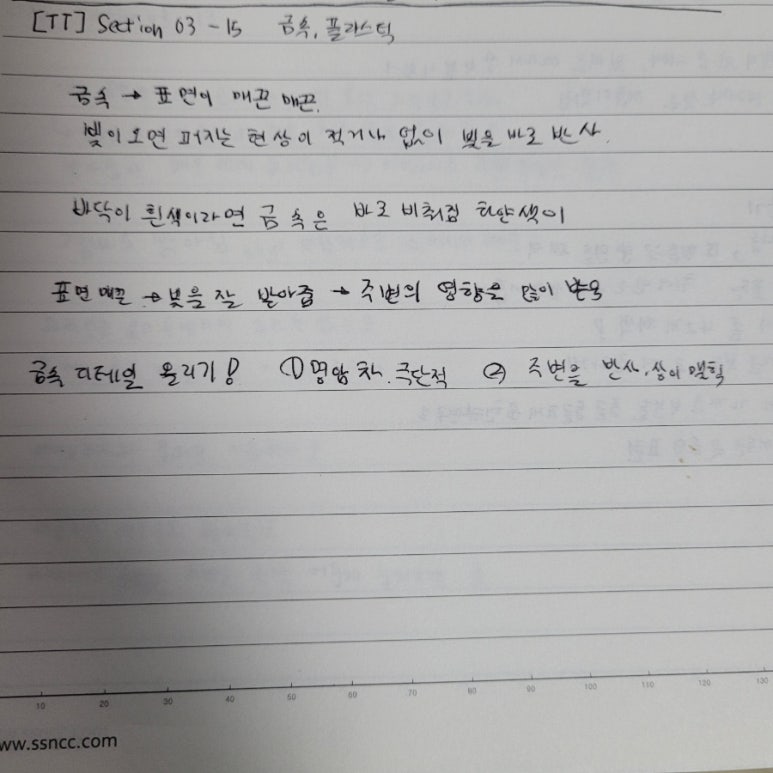 [TT] Section 03-15 금속, 플라스틱
금속 → 표면이 매끈 매끈.
빛이 오면 퍼지는 현상이 적거나 없이 빛을 바로 반사.
바닥이 흰색이라면 금속은 바로 비춰짐 하얀색이
표면 매끈 → 빛을 잘 받아줌 → 주변의 영향을 많이 받음
금속 디테일 올리기! ① 명암 차. 극단적 ② 주변을 반사. 상이 맺힘
10 20 30 40 50 60 70 80 90 100 110 120 130
ww.ssncc.com